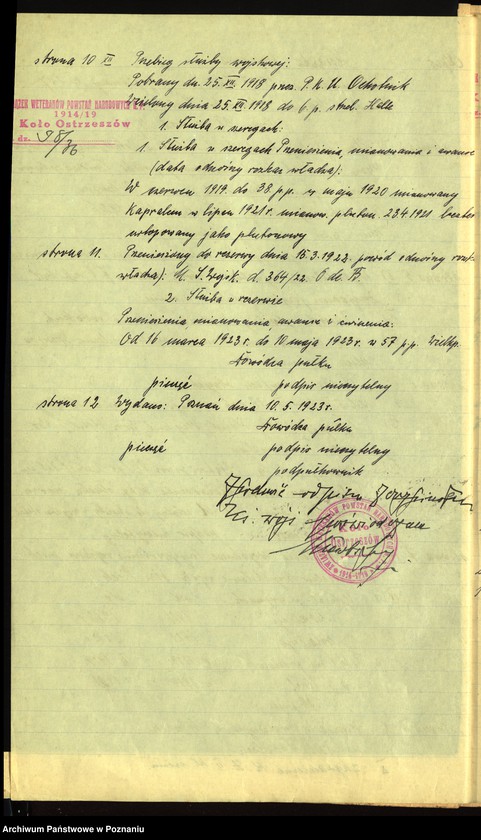 strona 10 XII Przebieg służby wojskowej:
Pobrany dn. 25.XII.1918 przez P.K.U. Ochotnik
Wcielony dnia 25.XII.1918 do 6 p. strel. Halle
ZEK WETERANÓW POWSTAŃ NARODOWYCH
1914/19
Koło Ostrzeszów
dz. 98/36
1. Służba w szeregach:
1. Służba w szeregach Przeniesienia, mianowania i awanse
(data odnośny rozkaz władza):
W czerwcu 1919 do 38 p.p. w maju 1920 mianowany
Kapralem w lipcu 1921 r. mianow. pluton. 23.4.1921
urlopowany jako plutonowy
strona 11. Przeniesiony do rezerwy dnia 15.3.1922 powód odnośny rozk.
władza): M. S. Wojsk. d. 364/22 O de B.
2. Służba w rezerwie
Przeniesienia mianowania, awanse i ćwiczenia:
Od 16 marca 1923 r. do 10 maja 1923 r. w 57 p.p. Wielkp.
Dowódca pułku
pieczęć podpis nieczytelny
strona 12 Wydano: Poznań dnia 10.5.1923 r.
Dowódca pułku
pieczęć podpis nieczytelny
podpułkownik
Zgodność odpisu
Koło
OSTRZESZÓW
1914-1919
Archiwum Państwowe w Poznaniu